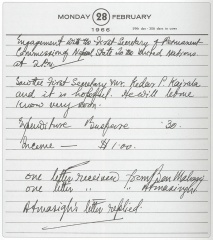 MONDAY 28 FEBRUARY
1966
Engagement with the First Secretary of Permanent
Commission of Nepal State to the United Nations
at 2 P.M.
Saw the First Secretary Mr. Kedar P. Koirala
and it is hopeful. He will let me
know very soon.
Expenditure Busfare .30.
Income — $1.00.
one letter received from Bon Maharaj
one letter " " Atmasingh
Atmasingh's letter replied.